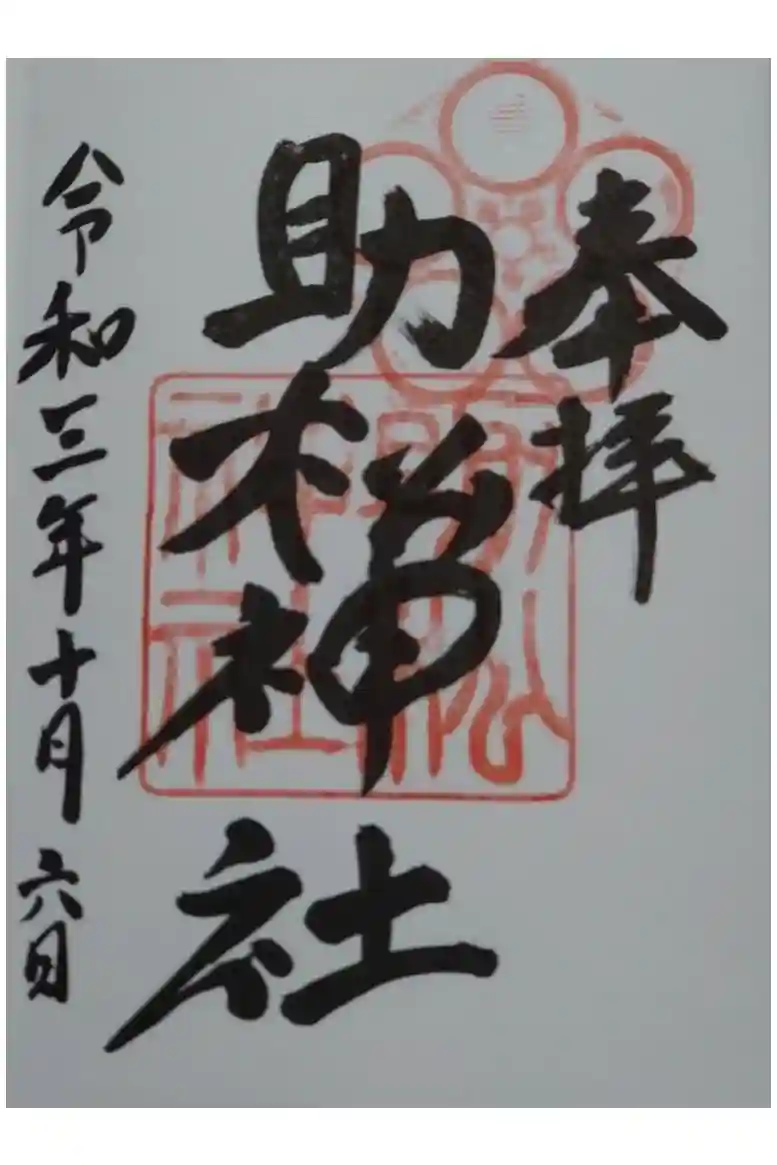 奉拝
助松神社
令和三年十月六日
助松
神社